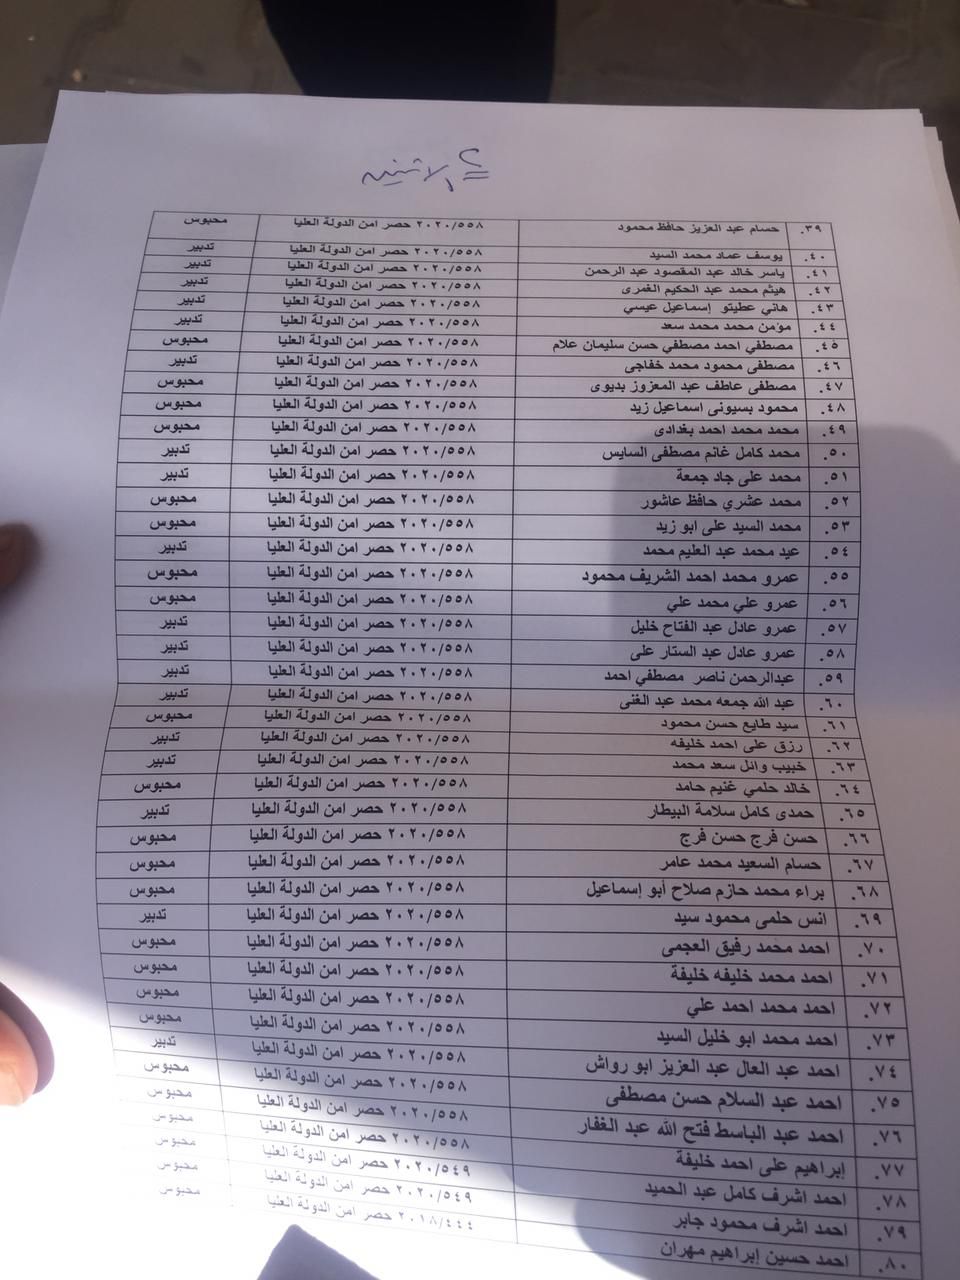 الاثنين
٣٩. حسام عبد العزيز حافظ محمود ٢٠٢٠/٥٥٨ حصر امن الدولة العليا محبوس
٤٠. يوسف عماد محمد السيد ٢٠٢٠/٥٥٨ حصر امن الدولة العليا تدبير
٤١. ياسر خالد عبد المقصود عبد الرحمن ٢٠٢٠/٥٥٨ حصر امن الدولة العليا تدبير
٤٢. هيثم محمد عبد الحكيم الغمرى ٢٠٢٠/٥٥٨ حصر امن الدولة العليا تدبير
٤٣. هاني عطيتو إسماعيل عيسي ٢٠٢٠/٥٥٨ حصر امن الدولة العليا تدبير
٤٤. مؤمن محمد محمد سعد ٢٠٢٠/٥٥٨ حصر امن الدولة العليا تدبير
٤٥. مصطفي احمد مصطفي حسن سليمان علام ٢٠٢٠/٥٥٨ حصر امن الدولة العليا محبوس
٤٦. مصطفى محمود محمد خفاجى ٢٠٢٠/٥٥٨ حصر امن الدولة العليا تدبير
٤٧. مصطفى عاطف عبد المعزوز بديوى ٢٠٢٠/٥٥٨ حصر امن الدولة العليا محبوس
٤٨. محمود بسيونى اسماعيل زيد ٢٠٢٠/٥٥٨ حصر امن الدولة العليا محبوس
٤٩. محمد محمد احمد بغدادى ٢٠٢٠/٥٥٨ حصر امن الدولة العليا محبوس
٥٠. محمد كامل غانم مصطفى السايس ٢٠٢٠/٥٥٨ حصر امن الدولة العليا تدبير
٥١. محمد على جاد جمعة ٢٠٢٠/٥٥٨ حصر امن الدولة العليا تدبير
٥٢. محمد عشري حافظ عاشور ٢٠٢٠/٥٥٨ حصر امن الدولة العليا محبوس
٥٣. محمد السيد على ابو زيد ٢٠٢٠/٥٥٨ حصر امن الدولة العليا محبوس
٥٤. عيد محمد عبد العليم محمد ٢٠٢٠/٥٥٨ حصر امن الدولة العليا تدبير
٥٥. عمرو محمد احمد الشريف محمود ٢٠٢٠/٥٥٨ حصر امن الدولة العليا محبوس
٥٦. عمرو علي محمد علي ٢٠٢٠/٥٥٨ حصر امن الدولة العليا محبوس
٥٧. عمرو عادل عبد الفتاح خليل ٢٠٢٠/٥٥٨ حصر امن الدولة العليا تدبير
٥٨. عمرو عادل عبد الستار على ٢٠٢٠/٥٥٨ حصر امن الدولة العليا تدبير
٥٩. عبدالرحمن ناصر مصطفي احمد ٢٠٢٠/٥٥٨ حصر امن الدولة العليا تدبير
٦٠. عبد الله جمعه محمد عبد الغنى ٢٠٢٠/٥٥٨ حصر امن الدولة العليا تدبير
٦١. سيد طايع حسن محمود ٢٠٢٠/٥٥٨ حصر امن الدولة العليا محبوس
٦٢. رزق على احمد خليفه ٢٠٢٠/٥٥٨ حصر امن الدولة العليا تدبير
٦٣. خبيب وائل سعد محمد ٢٠٢٠/٥٥٨ حصر امن الدولة العليا تدبير
٦٤. خالد حلمي غنيم حامد ٢٠٢٠/٥٥٨ حصر امن الدولة العليا محبوس
٦٥. حمدى كامل سلامة البيطار ٢٠٢٠/٥٥٨ حصر امن الدولة العليا تدبير
٦٦. حسن فرج حسن فرج ٢٠٢٠/٥٥٨ حصر امن الدولة العليا محبوس
٦٧. حسام السعيد محمد عامر ٢٠٢٠/٥٥٨ حصر امن الدولة العليا محبوس
٦٨. براء محمد حازم صلاح أبو إسماعيل ٢٠٢٠/٥٥٨ حصر امن الدولة العليا محبوس
٦٩. انس حلمى محمود سيد ٢٠٢٠/٥٥٨ حصر امن الدولة العليا تدبير
٧٠. احمد محمد رفيق العجمى ٢٠٢٠/٥٥٨ حصر امن الدولة العليا محبوس
٧١. احمد محمد خليفه خليفة ٢٠٢٠/٥٥٨ حصر امن الدولة العليا محبوس
٧٢. احمد محمد احمد علي ٢٠٢٠/٥٥٨ حصر امن الدولة العليا محبوس
٧٣. احمد محمد ابو خليل السيد ٢٠٢٠/٥٥٨ حصر امن الدولة العليا محبوس
٧٤. احمد عبد العال عبد العزيز ابو رواش ٢٠٢٠/٥٥٨ حصر امن الدولة العليا تدبير
٧٥. احمد عبد السلام حسن مصطفى ٢٠٢٠/٥٥٨ حصر امن الدولة العليا محبوس
٧٦. احمد عبد الباسط فتح الله عبد الغفار ٢٠٢٠/٥٥٨ حصر امن الدولة العليا محبوس
٧٧. إبراهيم على احمد خليفة ٢٠٢٠/٥٥٨ حصر امن الدولة العليا محبوس
٧٨. احمد اشرف كامل عبد الحميد ٢٠٢٠/٥٤٩ حصر امن الدولة العليا محبوس
٧٩. احمد اشرف محمود جابر ٢٠٢٠/٥٤٩ حصر امن الدولة العليا محبوس
٨٠. احمد حسين إبراهيم مهران ٢٠١٨/٤٤٤ حصر امن الدولة العليا محبوس